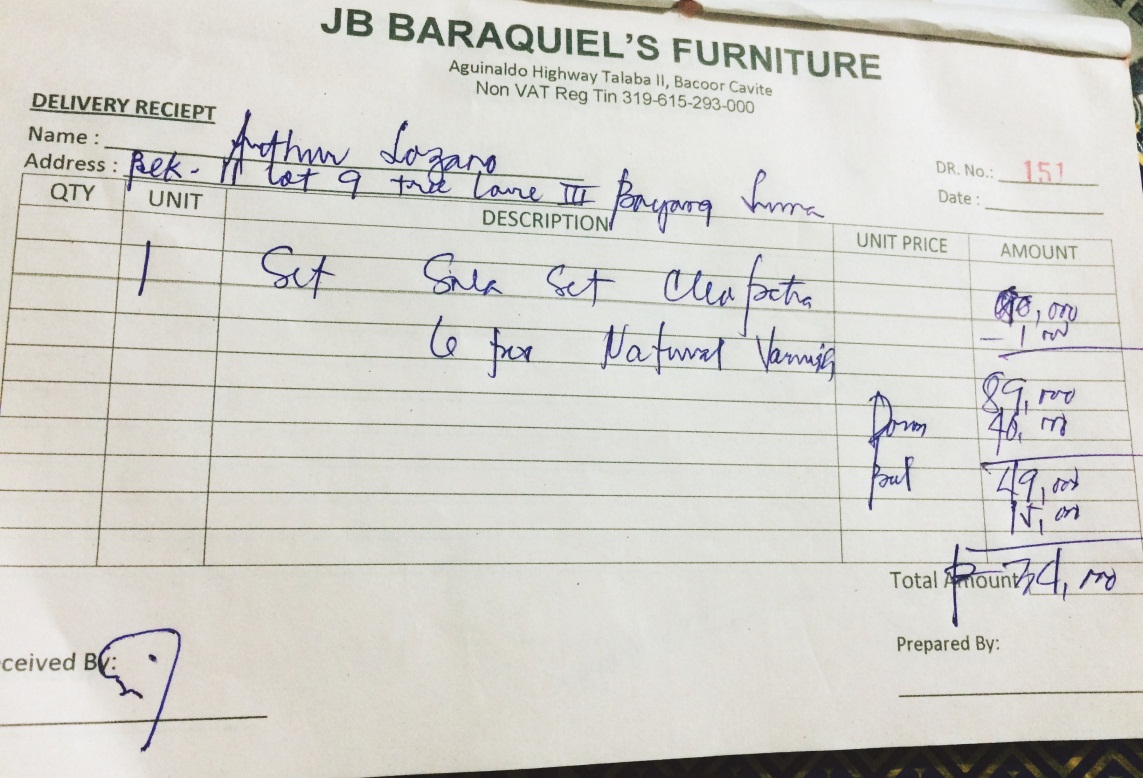 JB BARAQUIEL'S FURNITURE
Aguinaldo Highway Talaba II, Bacoor Cavite
Non VAT Reg Tin 319-615-293-000
DELIVERY RECIEPT
Name : Arthur Lozano
Address : Blk - 11 lot 9 tree lane III Bayang Luma
DR. No.: 151
Date :
QTY UNIT DESCRIPTION UNIT PRICE AMOUNT
1 Set Sala Set Cleopatra 90,000
6 pcs Natural Varnish - 1 000
89,000
Down 40,000
bal 49,000
15,000
Total Amount ₱ 34,000
ceived By:
Prepared By: